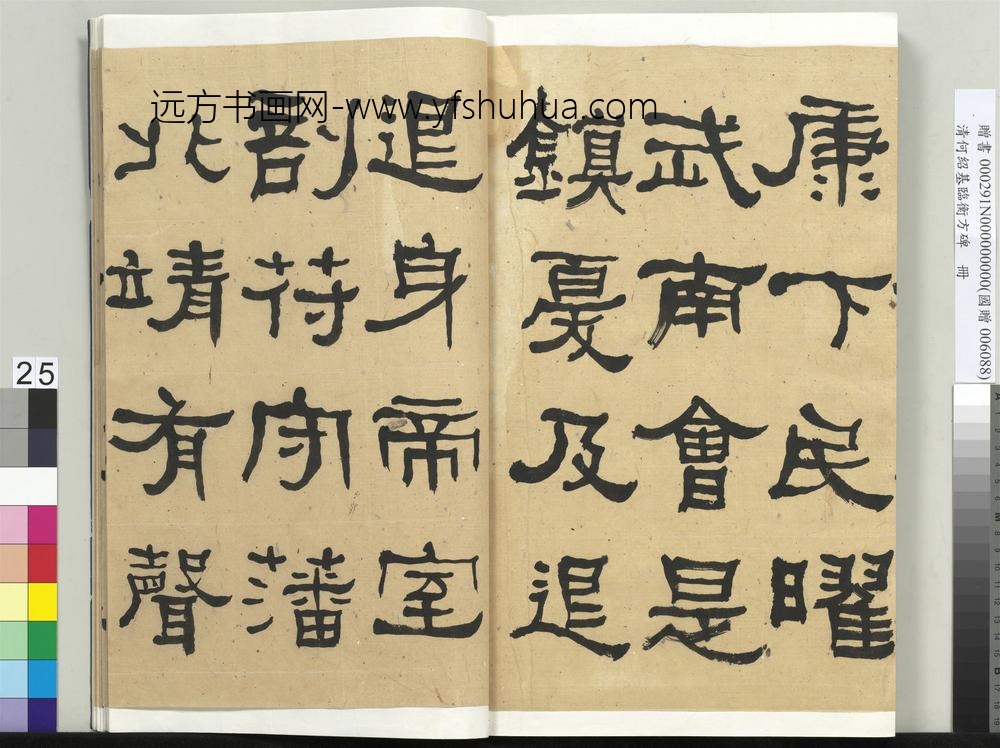 远方书画网-www.yfshuhua.com
康下民曜
武南會是
鎮憂及退
退身帝室
剖苻守藩
北靖有聲
贈書 000291N000000000(國贈 006088)
清何绍基臨衡方碑 冊
25